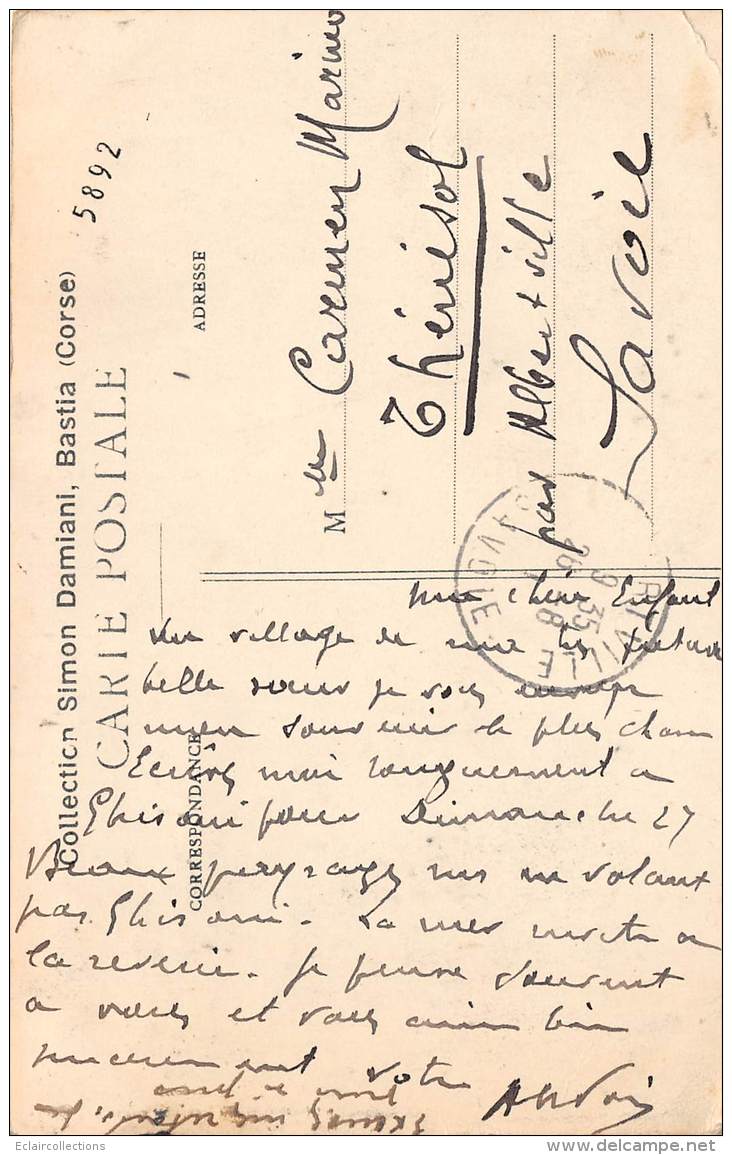 Collection Simon Damiani, Bastia (Corse)
5892
CARTE POSTALE
CORRESPONDANCE
ADRESSE
Mlle Carmen
Thénésol
par Albertville
Savoie
ALBERTVILLE
9 35
26 -8
SAVOIE
Ma chère Enfant
Du village de ma future
belle sœur je vous envoie
mon souvenir le plus
Ecrivez moi longuement a
Ghisoni pour Dimanche 27
Beaux paysages mais ne valant
pas Ghisoni. La mer invite a
la reverie. Je pense souvent
a vous et vous aime bien
sincerement votre
Eclaircollections
© www.delcampe.net